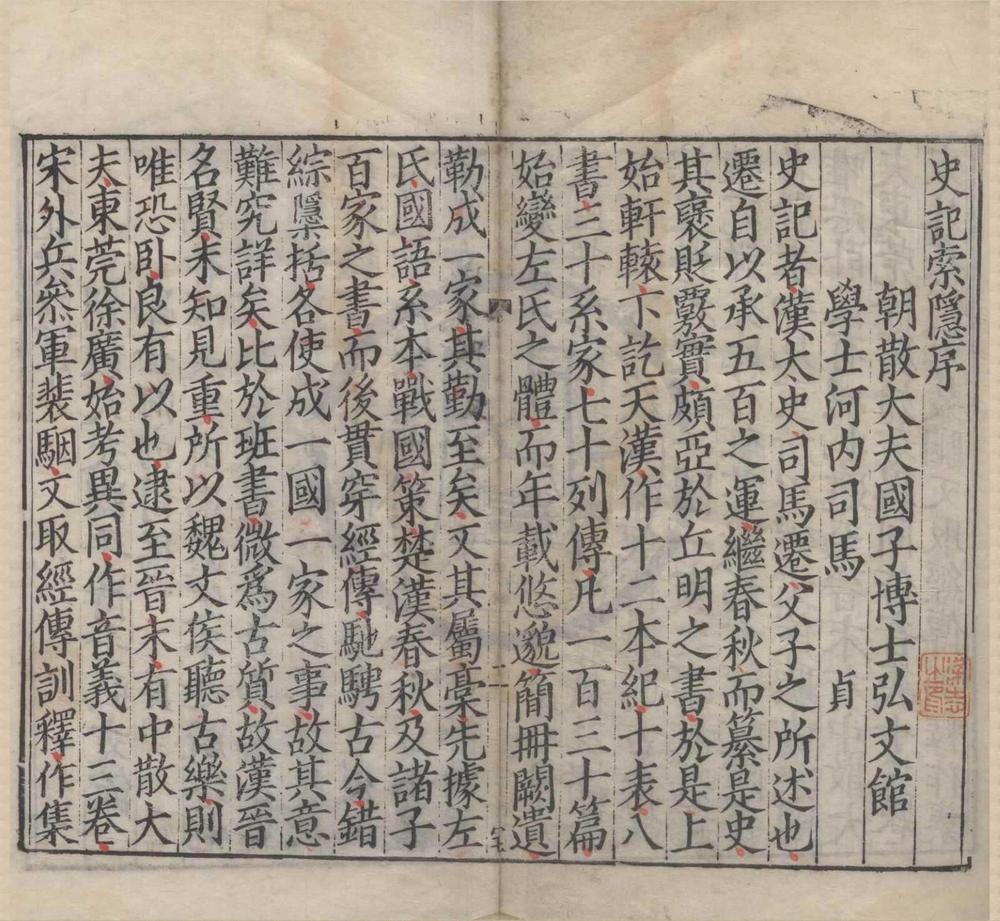 史記索隱序
朝散大夫國子博士弘文館
學士河內司馬 貞
史記者漢大史司馬遷父子之所述也
遷自以承五百之運繼春秋而纂是史
其襃貶覈實頗亞於丘明之書於是上
始軒轅下訖天漢作十二本紀十表八
書三十系家七十列傳凡一百三十篇
始變左氏之體而年載悠邈簡冊闕遺
勒成一家其勤至矣又其屬稾先據左
氏國語系本戰國策楚漢春秋及諸子
百家之書而後貫穿經傳馳騁古今錯
綜隱括各使成一國一家之事故其意
難究詳矣比於班書微爲古質故漢晉
名賢未知見重所以魏文侯聽古樂則
唯恐卧良有以也逮至晉末有中散大
夫東莞徐廣始考異同作音義十三卷
宋外兵叅軍裴駰又取經傳訓釋作集